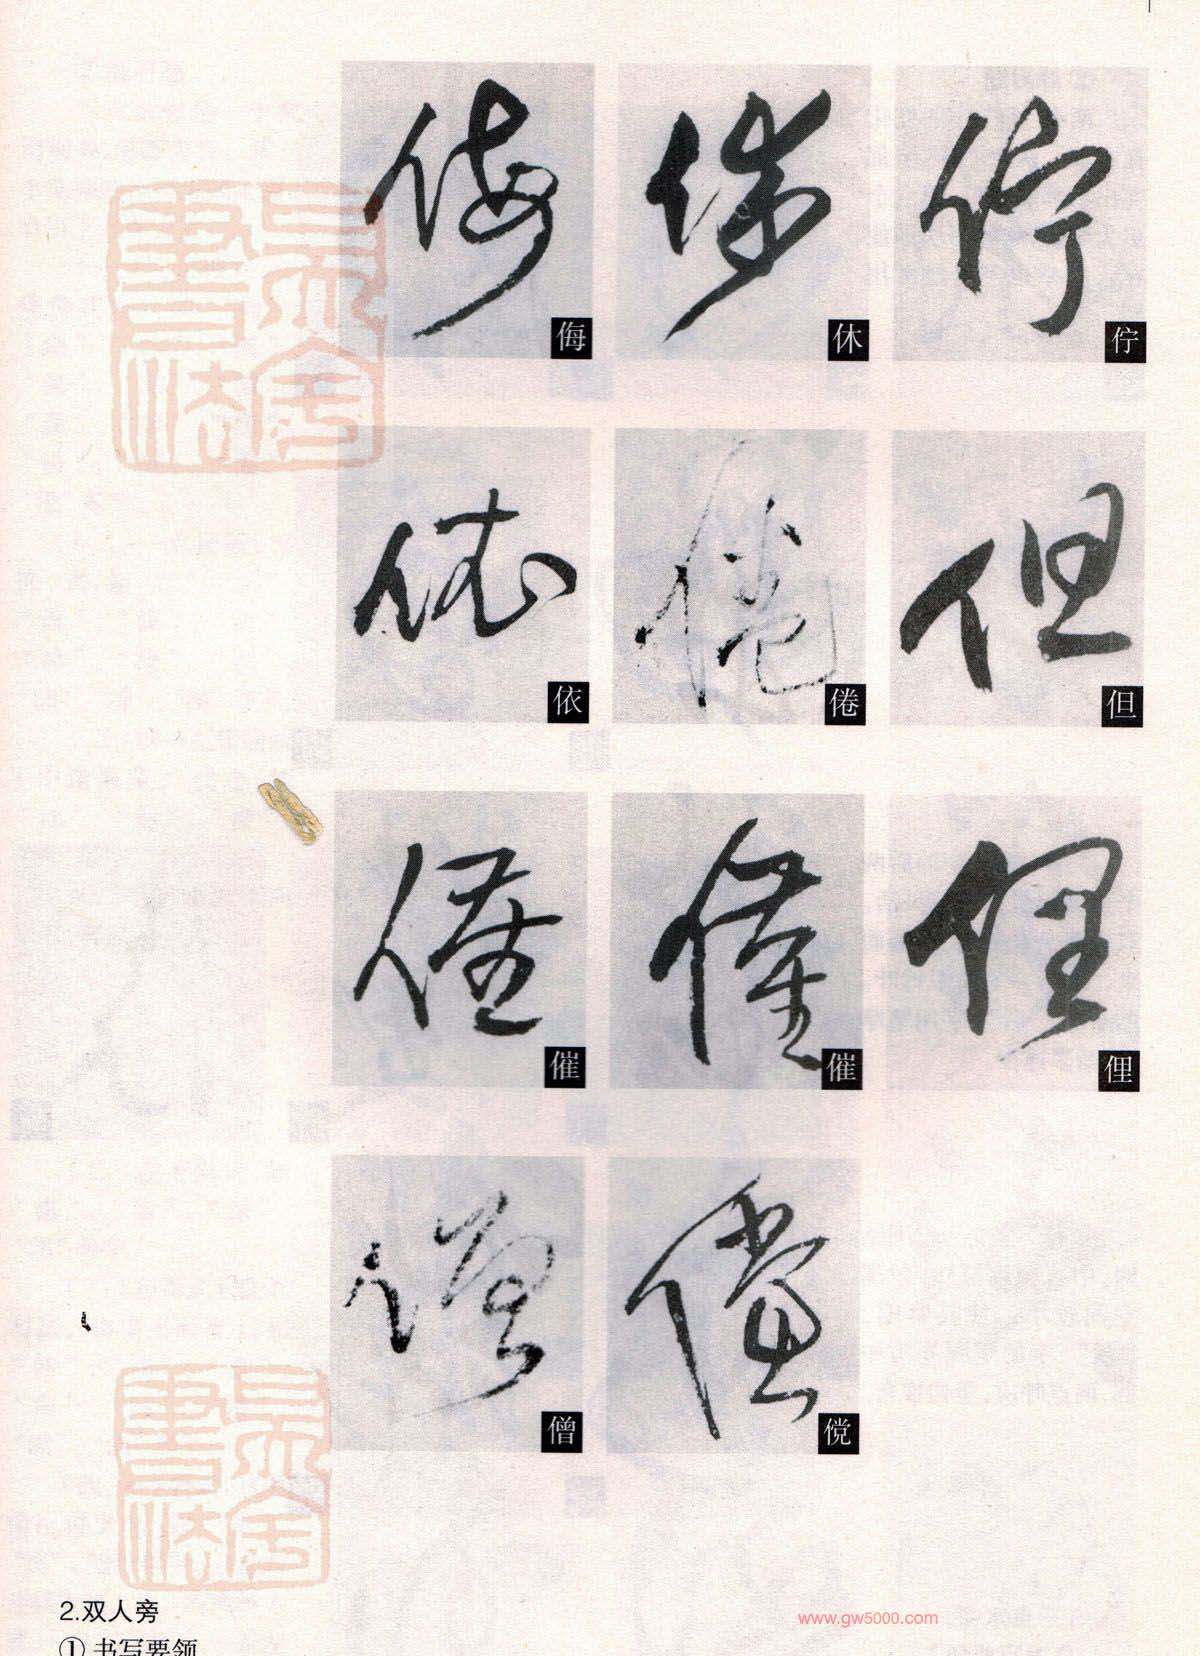 侮 休 佇
依 倦 但
催 催 俚
僧 傥
2.双人旁
① 书写要领
www.gw5000.com